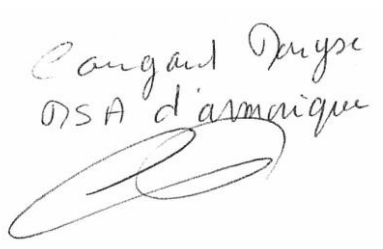 Cougard Maryse
MSA d'armorique